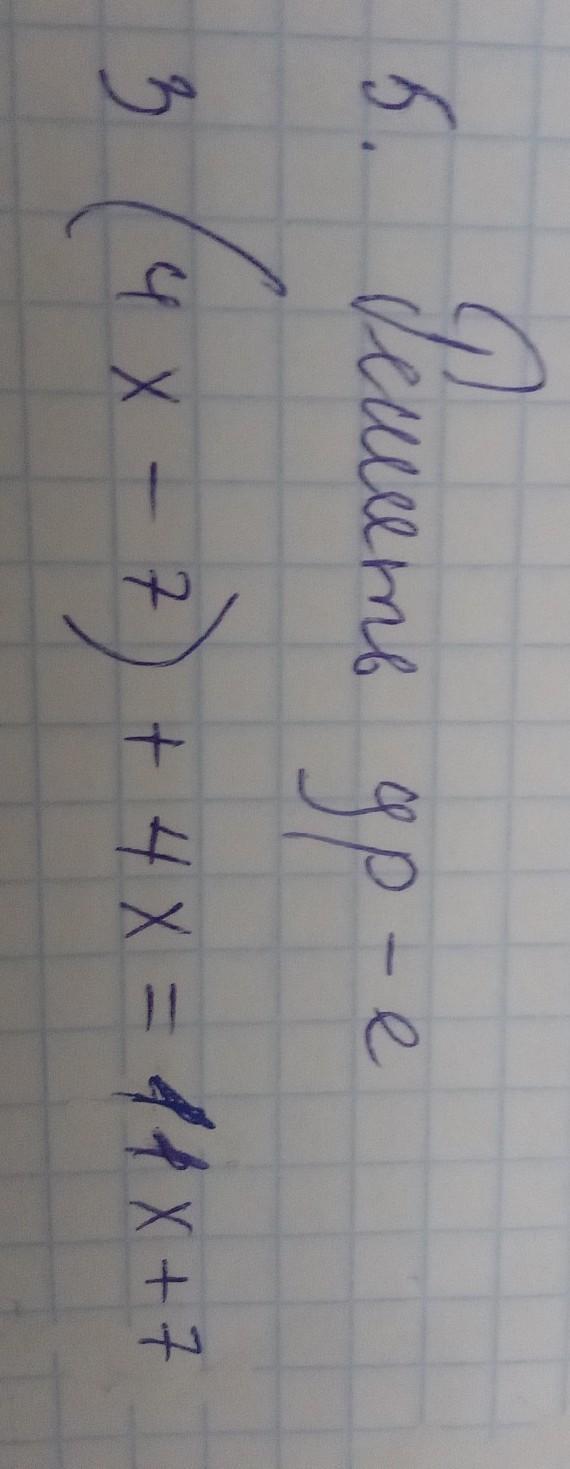 5. Решить ур-е
3(4x-7)+4x=11x+7